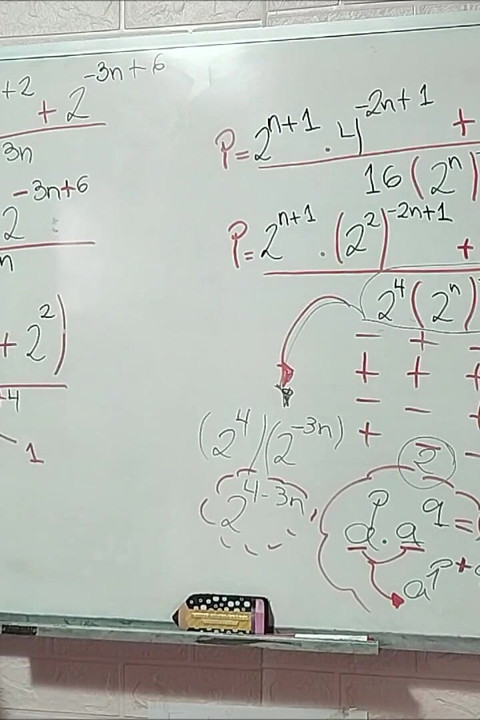 +2 + 2^{-3n+6}
3n
2^{-3n+6}
n
+ 2^2)
4
1
P = 2^{n+1} · 4^{-2n+1} +
16 (2^n)
P = 2^{n+1} · (2^2)^{-2n+1} +
2^4 (2^n)
- + -
+ + +
- - +
+ - -
(2^4)(2^{-3n})
2^{4-3n}
2
a^p · a^q =
a^{p+